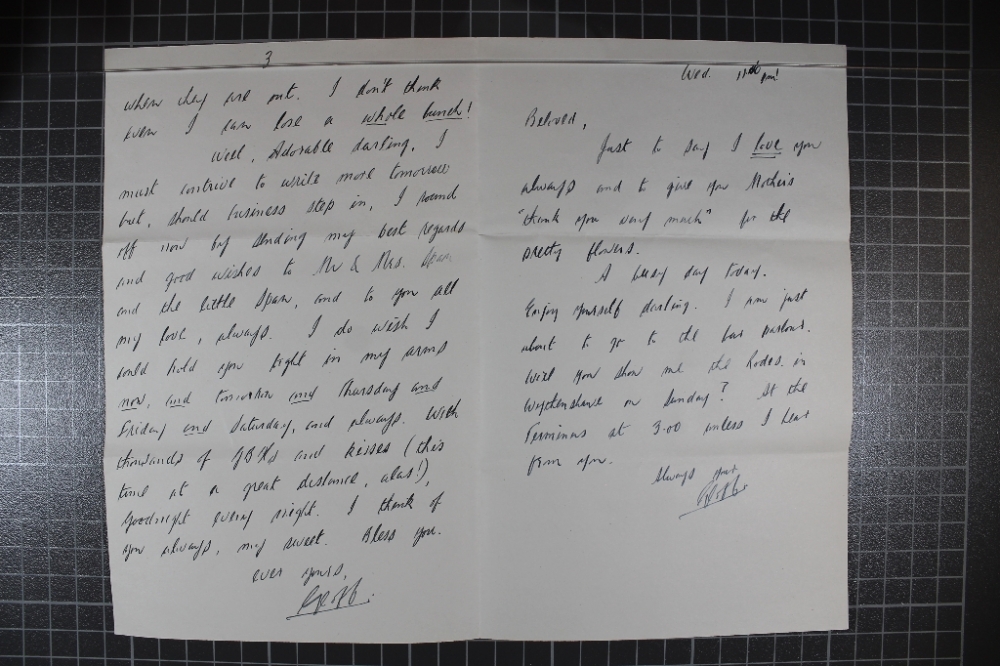 3
when they are out. I don't think
even I can lose a whole bunch!
Well, Adorable darling, I
must contrive to write more tomorrow
but, should business step in, I round
off now by sending my best regards
and good wishes to Mr & Mrs. Span
and the little Span, and to you all
my love, always. I do wish I
could hold you tight in my arms
now, and tomorrow and Thursday and
Friday and Saturday, and always. With
thousands of and kisses (this
time at a great distance, alas!),
Goodnight every night. I think of
you always, my sweet. Bless you.
ever yours,
Geoff.
Wed. pm!
Beloved,
Just to say I love you
always and to give you Mother's
"thank you very much" for the
pretty flowers.
A busy day today.
Enjoy yourself darling. I am just
about to go to the
Will you show me the Rodos. in
Wythenshawe on Sunday? At the
Terminus at 3.00 unless I hear
from you.
Always yours,
Geoff.